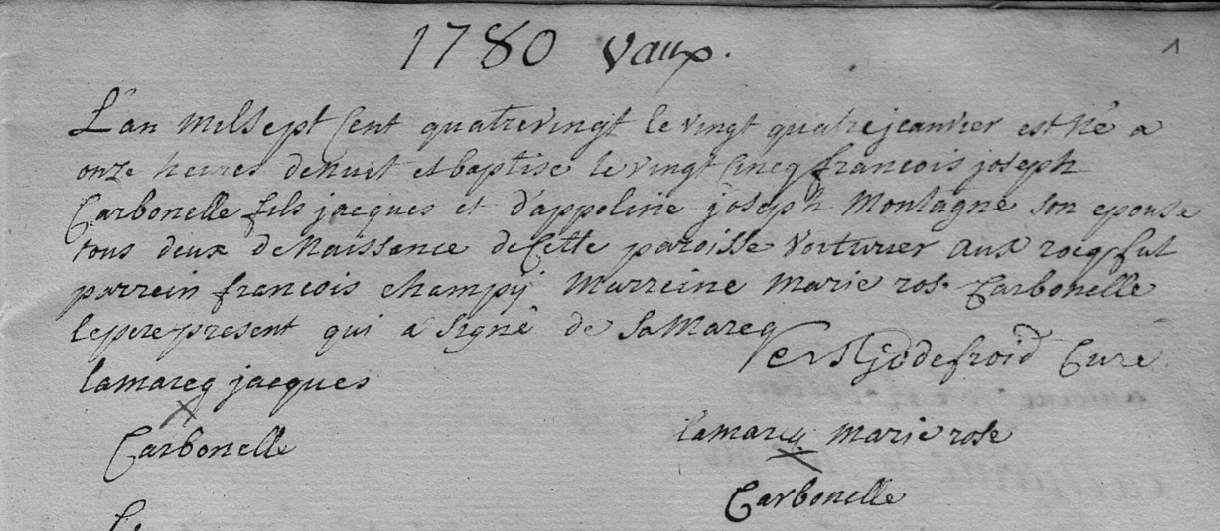 1780 Vaux.
1
L'an mil sept Cent quatrevingt le vingt quatre jeanvier est né a
onze heures denuit et baptise le vingt Cincq francois joseph
Carbonelle fils jacques et d'appoline joseph Montagne son epouse
tous deux de Naissance de Cette paroisse voiturier aux rocq fut
parrein francois champÿ Marreine Marie rose Carbonelle
le pere present qui a signé de sa Marcq
J Godefroid Curé
lamarcq jacques
X
Carbonelle
lamarcq Marie rose
X
Carbonelle